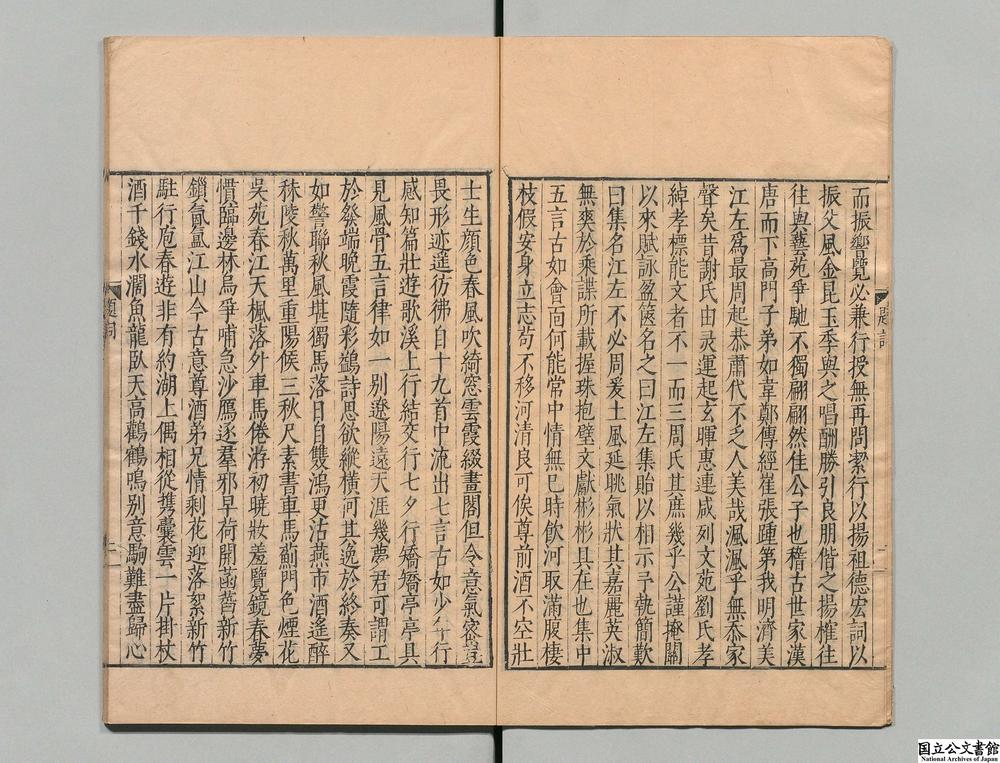 而振響覽必兼行授無再問絜行以揚祖德宏詞以
振父風金昆玉季與之唱酬勝引良朋偕之揚榷往
往與藝苑爭馳不獨翩翩然佳公子也稽古世家漢
唐而下高門子弟如韋鄭傳經崔張踵第我明濟美
江左爲最周起恭肅代不乏人美哉渢渢乎無忝家
聲矣昔謝氏由灵運起玄暉惠連咸列文苑劉氏孝
綽孝標能文者不一而三周氏其庶幾乎公謹掩關
以來賦詠盈篋名之曰江左集貽以相示予執簡歎
曰集名江左不必周爰土風延眺氣狀其嘉麗英淑
無爽於乘諜所載握珠抱璧文獻彬彬具在也集中
五言古如會面何能常中情無已時飲河取滿腹棲
枝假安身立志苟不移河清良可俟尊前酒不空壯
士生顏色春風吹綺窓雲霞綴畫閣但令意氣密豈
畏形迹遥彷彿自十九首中流出七言古如少年行
感知篇壯遊歌溪上行結交行七夕行矯矯亭亭具
見風骨五言律如一别遼陽遠天涯幾夢君可謂工
於發端晚霞隨彩鷁詩思欲縱横河其逸於終奏又
如警聯秋風堪獨馬落日自雙鴻更沽燕市酒遙醉
秣陵秋萬里重陽候三秋尺素書車馬薊門色煙花
吳苑春江天楓落外車馬倦游初曉妝羞覽鏡春夢
惜臨邊林烏爭哺急沙鴈逐羣邪早荷開菡萏新竹
鎖氤氳江山今古意尊酒弟兄情剩花迎落絮新竹
駐行庖春遊非有約湖上偶相從携囊雲一片掛杖
酒千錢水濶魚龍臥天高鸛鶴鳴别意駒難盡歸心
題詞
二
国立公文書館
National Archives of Japan